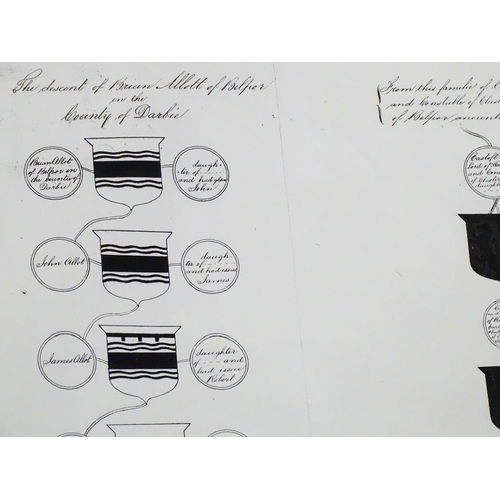 The descent of Brian Allott of Belpor
in the
County of Darbie
Brian Allot
of Belpor in
the county of
Darbie
daugh-
ter of ....
and had yssu
John
John Allot
daugh-
ter of ....
and had issu
James
James Allot
daughter
of .... and
had issue
Robert
From this familie of
and Constable of
of Belpor ancient
Lord of
and
of
daug